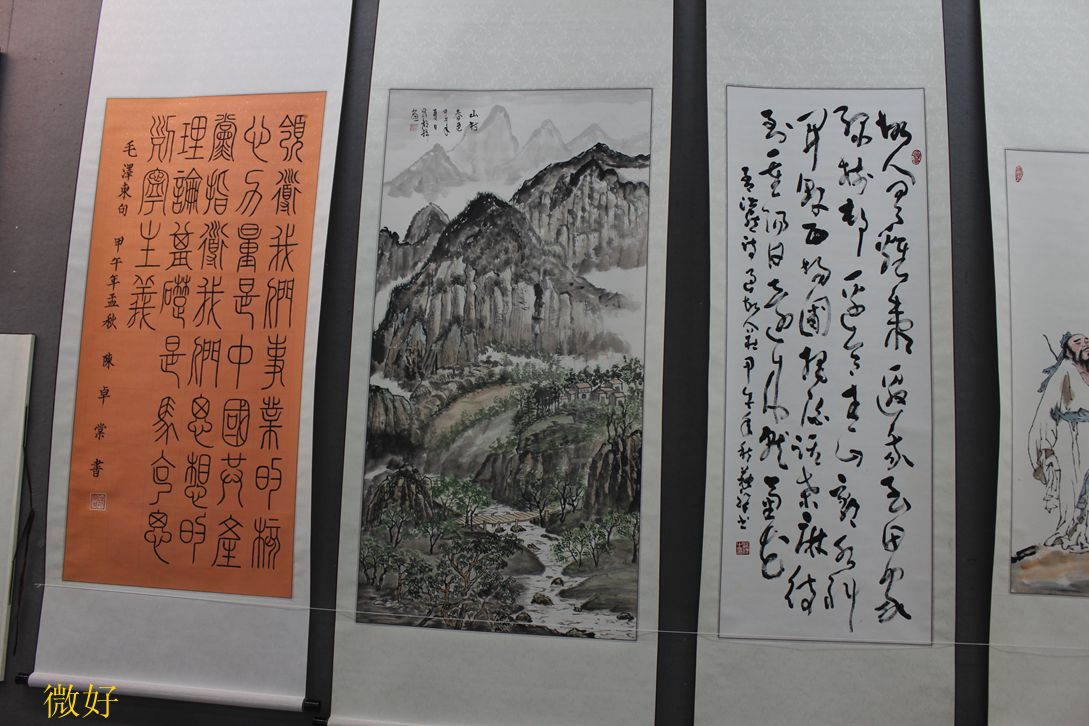 領導我們事業的核
心力量是中國共產
黨指導我們思想的
理論基礎是馬克思
列寧主義
毛澤東句
甲午年孟秋 陳卓棠書
山村
春色
甲午年
夏日
故人具雞黍邀我至田家
綠樹村邊合青山郭外斜
開軒面場圃把酒話桑麻待
到重陽日還來就菊花
孟浩然詩過故人莊甲午年秋
微好